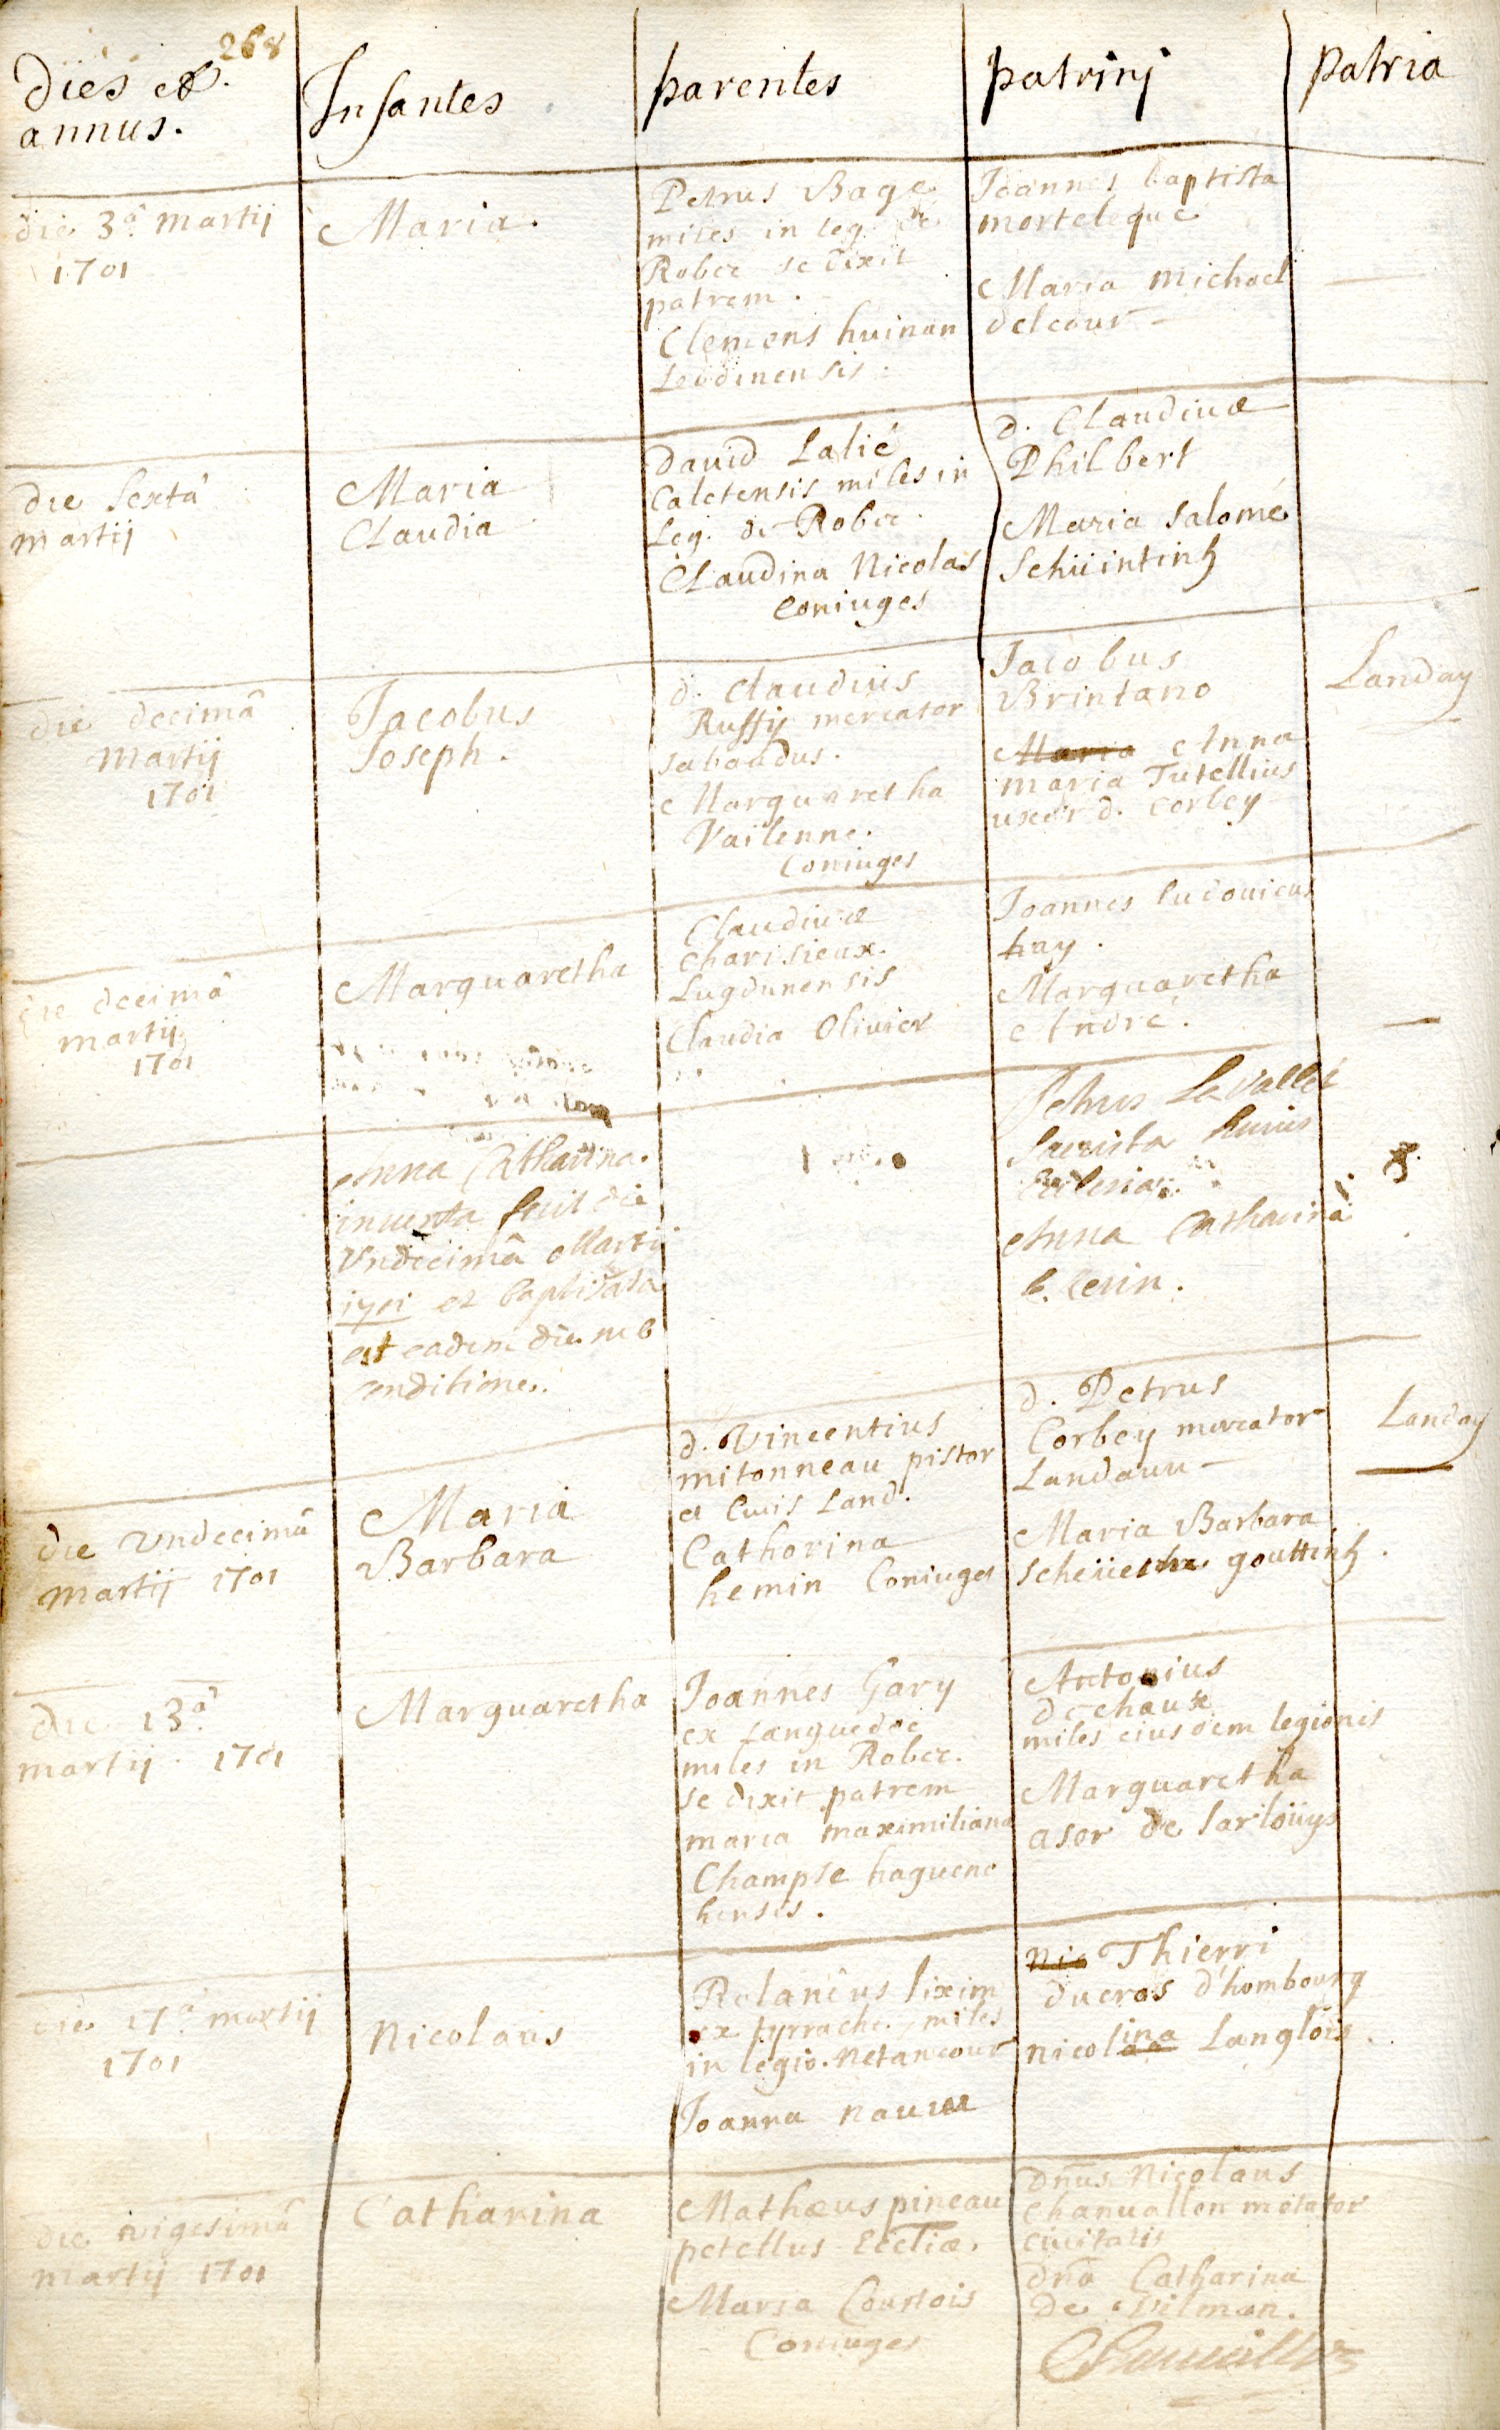 268
dies et
annus.
Infantes
parentes
patrinj
patria
die 3â martij
1701
Maria.
Petrus Bage
miles in leg. de
Robec se dixit
patrem.
Clemens huinan
Leodinensis.
Joannes baptista
morteleque
Maria michael
delcour
die sextâ
martij
Maria
Claudia
dauid Lalié
Caletensis miles in
Leg. de Robec.
Claudina Nicolas
coniuges
d. Claudius
Philbert
Maria salomé
Schüintinh
die decimâ
martij
1701
Jacobus
Joseph.
d. claudius
Ruffij mercator
sabaudus.
Marguaretha
Vailenne.
Coniuges
Jacobus
Brintano
Maria Anna
maria Tutellius
uxor d. corbey
Landay
die decimâ
martij
1701
Marguaretha
Claudius
charisieux.
Lugdunensis
Claudia Olivier
Joannes ludouicus
hay.
Marguaretha
André.
Anna Catharina.
inuenta fuit die
Vndecimâ Martij
1701 et baptisata
est eadem die sub
conditione.
Petrus LaVallei
sacrista huius
Ecclesiae.
Anna Catharina
die Vndecimâ
martij 1701
Maria
Barbara
d. Vincentius
mitonneau pistor
et Ciuis Land.
Catharina
hemin Coniuges
d. Petrus
Corbey mercator
Landauu
Maria Barbara
gouttinh.
Landay
die 13â
martij 1701
Marguaretha
Joannes Gary
ex Languedoc
miles in Robec.
se dixit patrem
maria maximiliana
Champse hagueno
hensis.
Antonius
dechaux
miles eiusdem legionis
Marguaretha
asor de sarloüys
die 17â martij
1701
Nicolaus
Rolandus lixim
ex pyrrache. miles
in legio. Netancour
Joanna
Nic Thierri
ducros d'hombourg
nicolina Langlois.
die vigesimâ
martij 1701
Catharina
Mathaeus pineau
petellus Eccliae.
Maria Courtois
Coniuges
dnus Nicolaus
Chanuallon metator
ciuitatis
dna Catharina
De vilman.